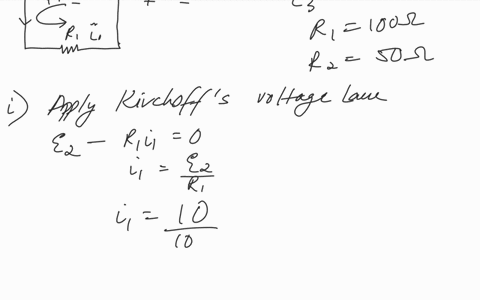 R₁ i₁
R₁ = 100Ω
R₂ = 50Ω
i) Apply Kirchoff's voltage law
ε₂ - R₁i₁ = 0
i₁ = ε₂/R₁
i₁ = 10/10